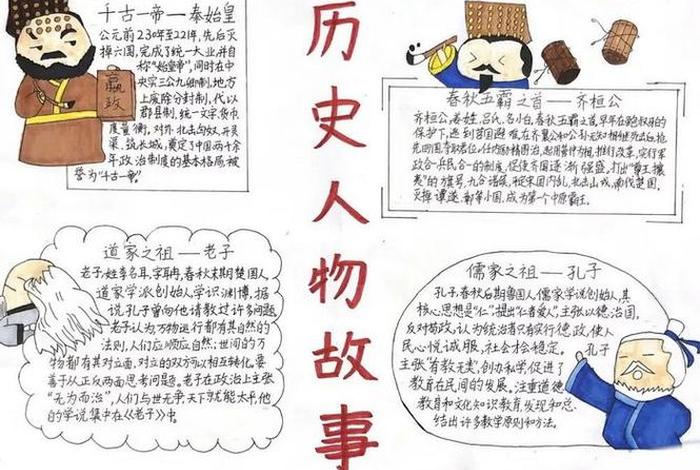 历史人物故事
千古一帝—秦始皇
公元前230年至221年,先后灭
掉六国,完成了统一大业,并自
称“始皇帝”,同时在中
央实三公九卿制,地方
上废除分封制,代以
郡县制,统一文字、货币
度量衡,对外北击匈奴,开灵
渠,筑长城,奠定了中国两千余
年政治制度的基本格局被
誉为“千古一帝”。
嬴政
春秋五霸之首——齐桓公
齐桓公,姜姓,吕氏,名小白,春秋五霸之首,早年在鲍叔牙的
保护下,逃到莒国避难,在齐襄公和公孙无知相继死后,抢
先回国夺取君位,任内励精图治,起用管仲为相,推行改革,实行军
政合一、兵民合一的制度,促使齐国逐渐强盛,打出“尊王攘
夷”的旗号,九合诸侯,平定宋国内乱,北击山戎,南伐楚国,
灭掉谭遂、鄣等小国,成为第一个中原霸主。
道家之祖—老子
老子,姓李名耳,字聃,春秋末期楚国人,
道家学派创始人,学识渊博,据
说,孔子曾向他请教过许多问题
老子认为万物运行都有其自然的
法则,人们应顺应自然;世间的万
物都有其对立面,对立的双方可以相互转化,要
善于从正反两面思考问题。老子在政治上主张
“无为而治”,人们与世无争天下就能太平,他
的学说集中在《老子》中。
儒家之祖——孔子
孔子,春秋后期鲁国人,儒家学说创始人,其
核心思想是“仁”,提出“仁者爱人”,主张以德治国,
反对苛政,认为统治者只有实行德政,使人
民心悦诚服,社会才会稳定。
主张“有教无类”,创办私学,促进了
教育在民间的发展。注重道德
教育和文化知识教育,发现和总
结出许多教学原则和方法。
孔子